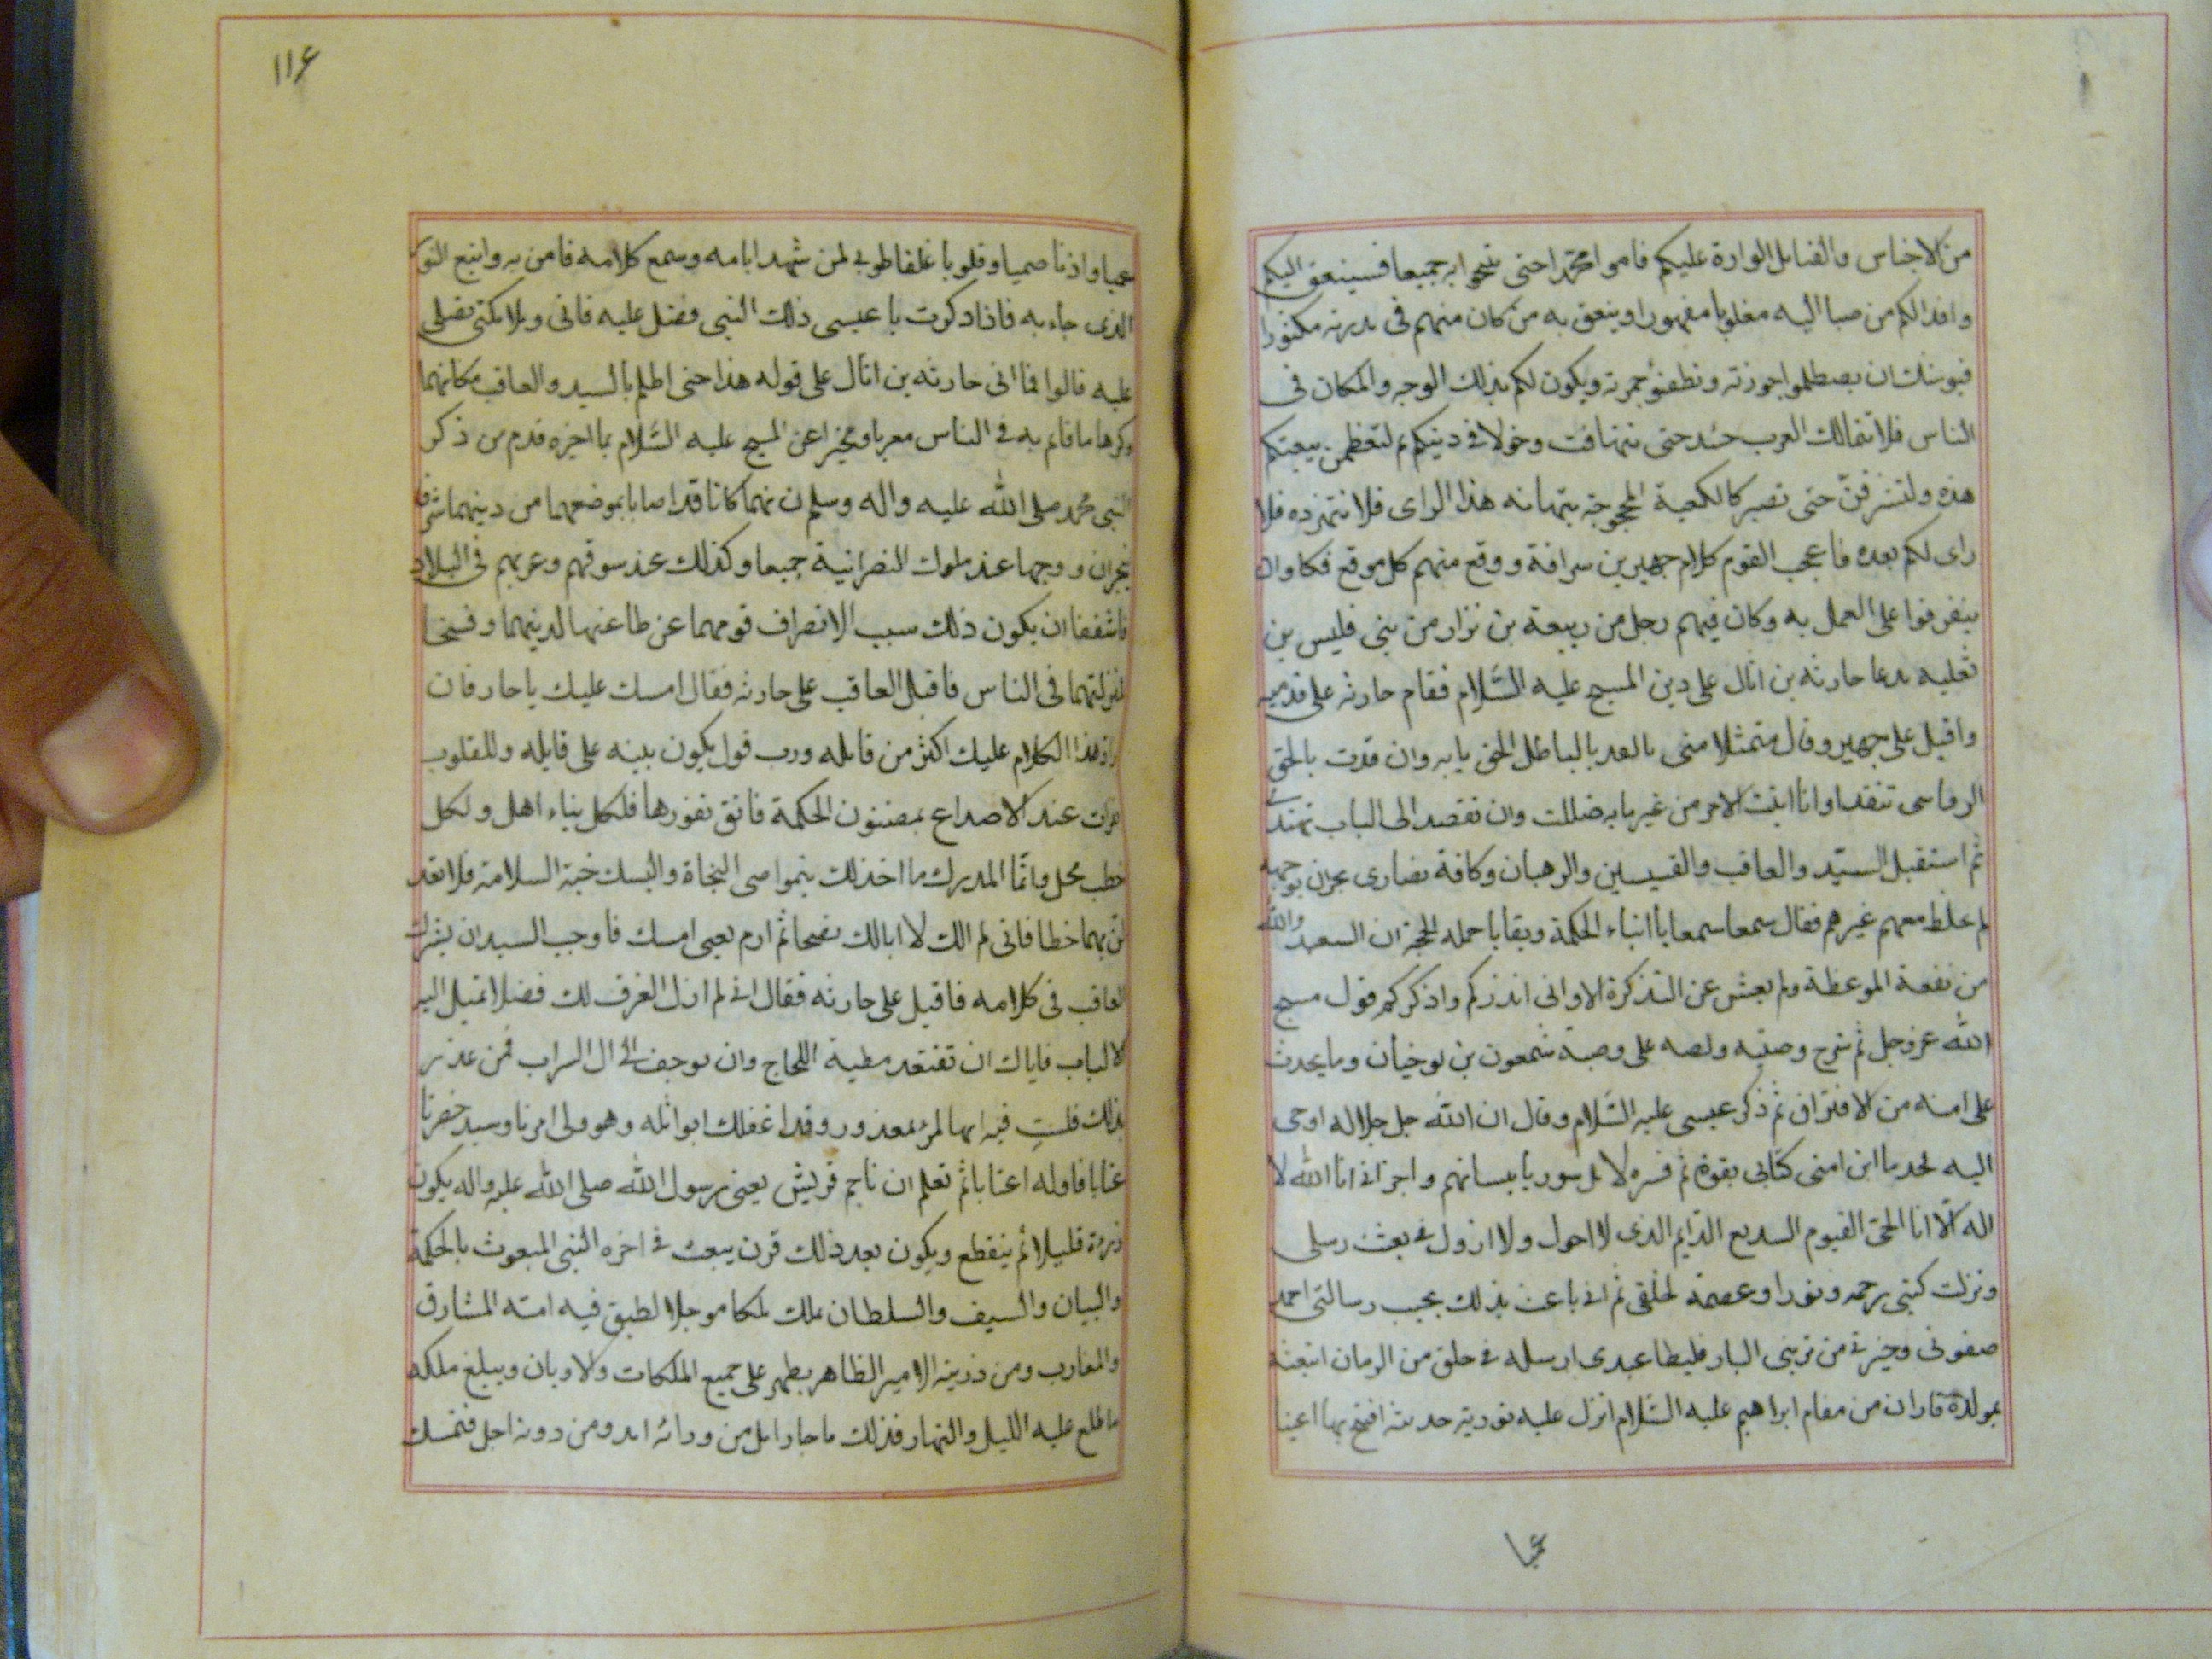 من الاجناس والقبايل الوارة عليكم فاموا محمدا حتى تنيخوا به جميعا فسينعق اليكم
وافدا لكم من صبا اليه مغلوبا مقهورا وينعق به من كان منهم فى مكثورا
فيوشك ان يصطلموا حوزته ونطفئو جمرته ويكون لكم بذلك الوجه والمكان فى
الناس فلا تتمالك العرب حتى تتهافت دخولا فى دينكم ثم لتعظمن بيعتكم
هذه ولتشرفن حتى تصير كالكعبة المحجوجة بتهامه هذا الراى فلا
راى لكم بعده فاعجب القوم كلام جهير بن سراقة ووقع منهم كل موقع فكاد وان
يتفرقوا على العمل به وكان فيهم رجل من ربيعة بن نزار من بنى قيس بن
ثعلبه يدعا حارثه بن اثال على دين المسيح عليه السلام فقام حارثه على قدميه
واقبل على جهير وقال متمثلا متى بالباطل الحق يابه وان قدت بالحق
الرواسى تنقد اوانا اتيت الامر من غير بابه ضللت وان تقصد الى الباب تهتد
ثم استقبل السيد والعاقب والقسيسين والرهبان وكافة نصارى نجران بوجهه
لم يخلط معهم غيرهم فقال سمعا سمعا يا ابناء الحكمة وبقايا حمله الحجة ان السعيد والله
من نفعة الموعظة ولم يعش عن التذكرة الا وانى انذركم واذكركم قول مسيح
الله عز وجل ثم شرح وصيته ونصه على وصية شمعون بن يوحنان وما يحدث
على امته من الافتراق ثم ذكر عيسى عليه السلام وقال ان الله جل جلاله اوحى
اليه فخذ يا ابن امتى كتابى بقوة ثم فسره لاهل سوريا بلسانهم واخبرهم انى انا الله لا
اله الا انا الحى القيوم البديع الدايم الذى لا احول ولا ازول انى بعثت رسلى
ونزلت كتبى رحمه ونورا وعصمة لخلقى ثم انى باعث بذلك نجيب رسالتى احمد
صفوتى وخيرتى من بريتى البار قليطا عبدى ارسله فى خلو من الزمان ابتعثه
بمولده فاران من مقام ابراهيم عليه السلام انزل عليه توريه حديثه افتح بها اعينا
عميا
١١۶
عميا واذنا صميا وقلوبا غلفا طوبى لمن شهد ايامه وسمع كلامه فامن به واتبع النور
الذى جاء به فاذا ذكرت يا عيسى ذلك النبى فصل عليه فانى وملائكتى نصلى
عليه قالوا فما اتى حارثه بن اثال على قوله هذا حتى اظلم بالسيد والعاقب مكانهما
وكرها ما قام به فى الناس معربا ومخبرا عن المسيح عليه السلام بما اخبره قدم من ذكر
النبى محمد صلى الله عليه واله وسلم انهما كانا قد اصابا بموضعهما من دينهما شرفا
نجران ووجها عند ملوك النصرانية جميعا وكذلك عند سوقهم وعربهم فى البلاد
فاشفقا ان يكون ذلك سبب الانصراف قومهما عن طاعتهما لدينهما وفسخا
لمنزلتهما فى الناس فاقبل العاقب على حارثه فقال امسك عليك يا حار فان
راد هذا الكلام عليك اكثر من قابله ورب قول يكون بينه على قايله وللقلوب
نفرات عند الاصداع بمضنون الحكمة فاتق نفورها فلكل بناء اهل ولكل
خطب محل وانما المدرك ما اخذ لك بنواصى النجاة والبسك جنة السلامة فلا تعد
لن بهما حظا فانى لم الك لا ابالك نصحا ثم ارم يعنى امسك فاوجب السيد ان يشرك
العاقب فى كلامه فاقبل على حارثه فقال انى لم ازل اتعرف لك فضلا تميل اليه
الالباب فاياك ان تقتعد مطية اللجاج وان توجف الى ال السراب فمن عذر
بذلك فلست فيه ايها المرء بمعذور وقد اغفلك ابو اثله وهو ولى امرنا وسيد حضرنا
عتابا فاوله اعتابا ثم تعلم ان ناجم قريش يعنى رسول الله صلى الله عليه واله يكون
رزؤه قليلا ثم ينقطع ويكون بعد ذلك قرن يبعث فى اخره النبى المبعوث بالحكمة
والبيان والسيف والسلطان يملك ملكا موجلا تطبق فيه امته المشارق
والمغارب ومن ذريته الامير الظاهر يظهر على جميع الملكات والاديان ويبلغ ملكه
ما طلع عليه الليل والنهار وذلك يا حار امل من ورائه امد ومن دونه اجل فتمسك